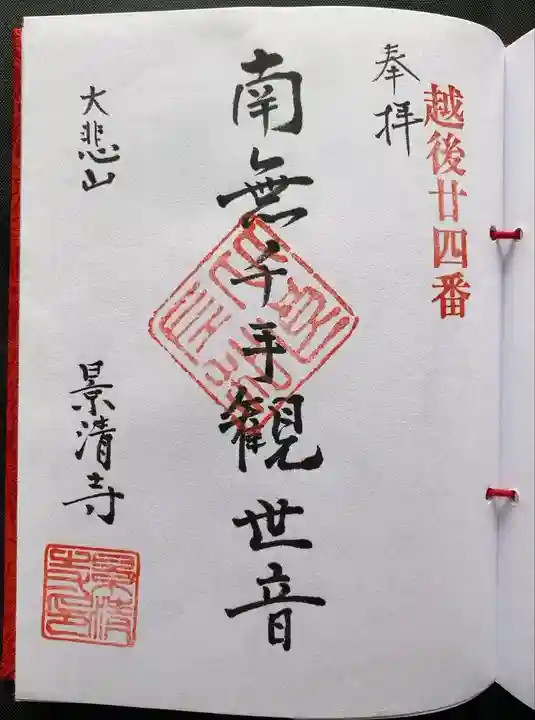 越後廿四番
奉拝
南無千手観世音
大悲山
景清寺